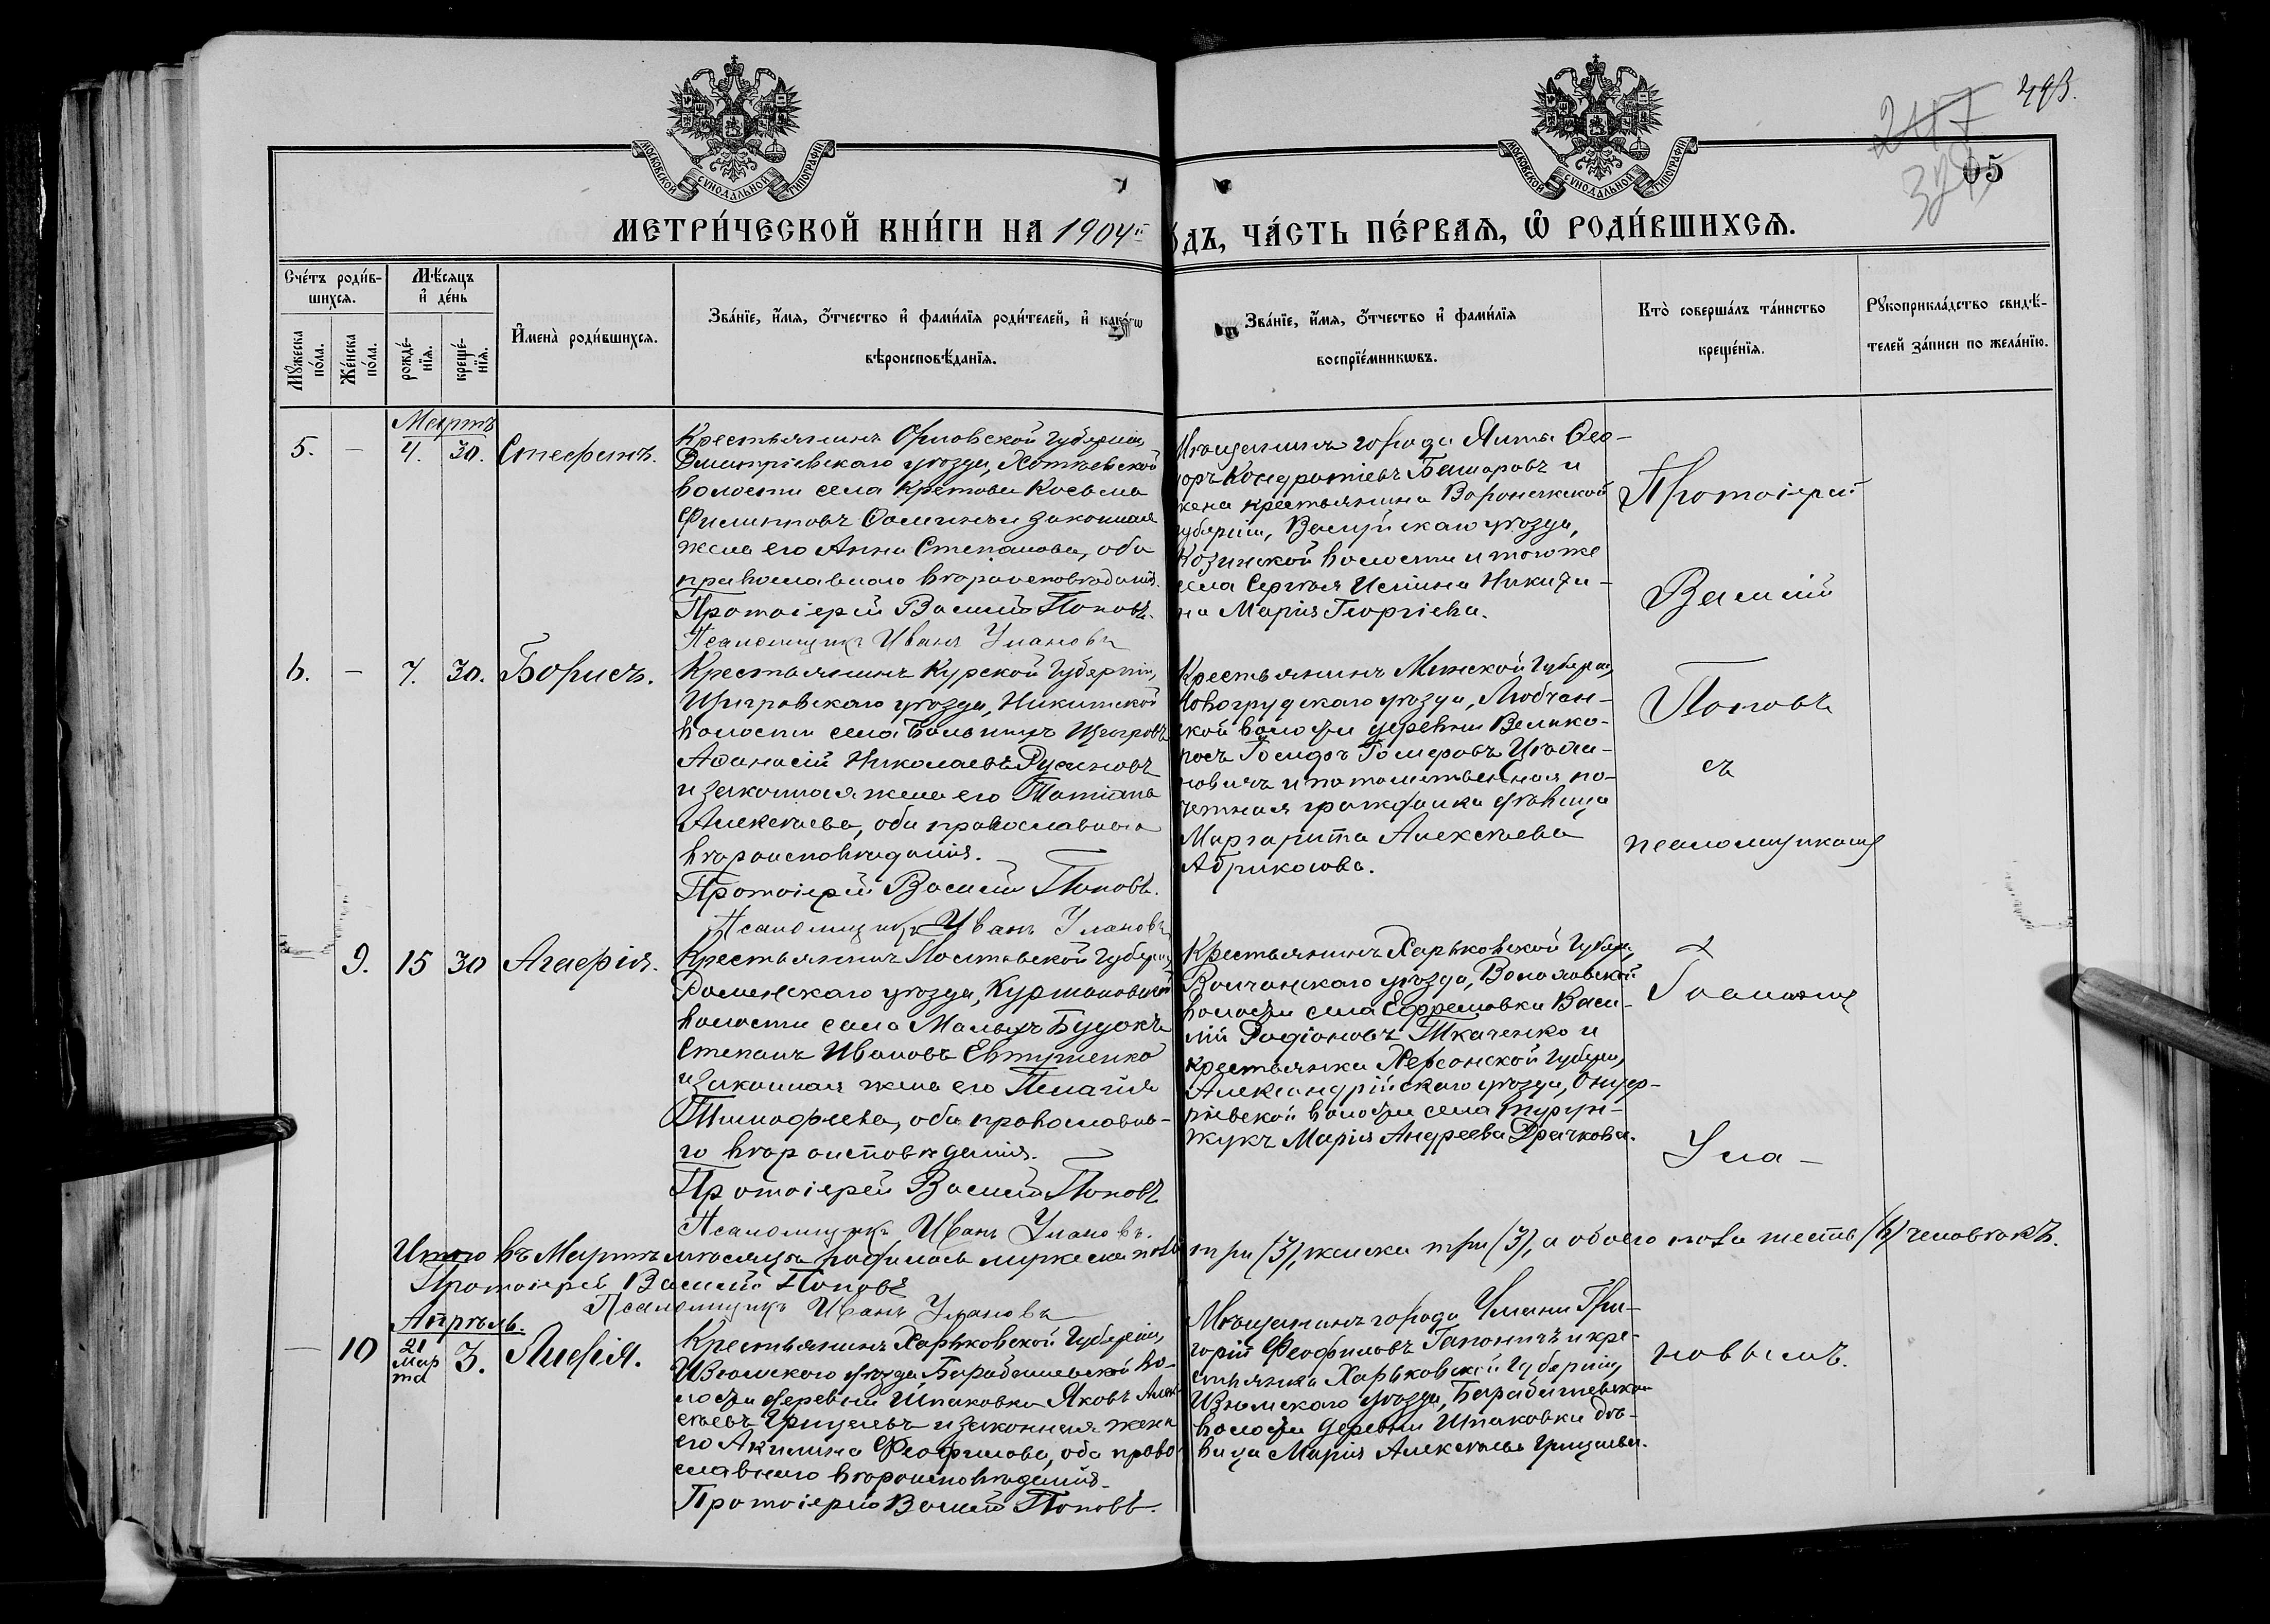 493.
217
05
МОСКОВСКОЙ СѴНОДАЛЬНОЙ ТИПОГРАФІИ
МОСКОВСКОЙ СѴНОДАЛЬНОЙ ТИПОГРАФІИ
МЕТРИ́ЧЕСКОЙ КНИ́ГИ НА 1904й
ДЪ, ЧА́СТЬ ПЕ́РВАѦ, Ѡ҆ РОДИ́ВШИХСѦ.
Сче́тъ роди́в-
шихсѧ.
Мѣ́сѧцъ
и҆ де́нь
Мꙋ́жеска по́ла.
Же́нска по́ла.
рожде́-нїѧ.
креще́-нїѧ.
И҆мена̀ роди́вшихсѧ.
Зва́нїе, и҆́мѧ, ѻ҆́тчество и҆ фами́лїѧ роди́телей, и҆ како́гѡ
вѣроисповѣ́данїѧ.
Зва́нїе, и҆́мѧ, ѻ҆́тчество и҆ фами́лїѧ
воспрїе́мникѡвъ.
Кто̀ соверша́лъ та́инство
креще́нїѧ.
Рꙋкоприкла́дство свидѣ́-
телей за́писи по жела́нїю.
Мартъ
5. – 4. 30. Стефанъ.
Крестьянинъ Орловской Губерніи,
Дмитріевскаго уѣзда, Хотѣевской
волости села Кретова Косьма
Филипповъ Ѳоминъ и законная
жена его Анна Степанова, оба
православнаго вѣроисповѣданія.
Протоіерей Василій Поповъ.
Псаломщикъ Иванъ Улановъ
Мѣщанинъ города Ялты Ѳео-
оръ Кондратіевъ Башаровъ и
жена крестьянина Воронежской
губерніи, Валуйскаго уѣзда,
Козинской волости и того же
села Сергѣя Исіина Никити-
на Марія Георгіева.
Протоіерей
Василій
6. – 7. 30. Борисъ.
Крестьянинъ Курской Губерніи,
Щигровскаго уѣзда, Никитской
волости села Большихъ Щигровъ
Аѳанасій Николаевъ Русиновъ
и законная жена его Татіана
Алексѣева, оба православнаго
вѣроисповѣданія.
Протоіерей Василій Поповъ.
Псаломщикъ Иванъ Улановъ
Крестьянинъ Минской Губерніи,
Новогрудскаго уѣзда, Любчан-
ской волости деревни Велико-
и потомственная по-
четная гражданка дѣвица
Маргарита Алексѣева
Абрикосова.
Поповъ
съ
псаломщикомъ
– 9. 15 30 Агафія.
Крестьянинъ Полтавской Губерніи,
Роменскаго уѣзда, Курмановской
волости села Малыхъ Будокъ
Степанъ Ивановъ Евтушенко
и законная жена его Пелагія
Тимофеева, оба православна-
го вѣроисповѣданія.
Протоіерей Василій Поповъ
Псаломщикъ Иванъ Улановъ.
Крестьянинъ Харьковской Губерн.,
Волчанскаго уѣзда, Волоховской
волости села Ефремовки Васи-
лій Родіоновъ Ткаченко и
крестьянка Херсонской Губерн.,
Александрійскаго уѣзда, Онуф-
ріевской волости села
Марія Андреева Драчкова.
Іоанномъ
Ула-
Итого въ Мартѣ мѣсяцѣ родилось мужеска пола
три (3), женска три (3), а обоего пола шесть (6) человѣкъ.
Протоіерей Василій Поповъ
Псаломщикъ Иванъ Улановъ
Апрѣль.
– 10 21 Марта 3. Лидія.
Крестьянинъ Харьковской Губерніи,
Изюмскаго уѣзда Барабашевской во-
лости деревни Шпаковки Яковъ Алек-
сѣевъ Грицаевъ и законная жена
его Акилина Феофилова, оба право-
славнаго вѣроисповѣданія.
Протоіерей Василій Поповъ.
Мѣщанинъ города Умани Гри-
горій Феофиловъ Гапоничъ и кре-
стьянка Харьковской Губерніи,
Изюмскаго уѣзда, Барабашевской
волости деревни Шпаковки дѣ-
вица Марія Алексѣева Грицаева.
новымъ.